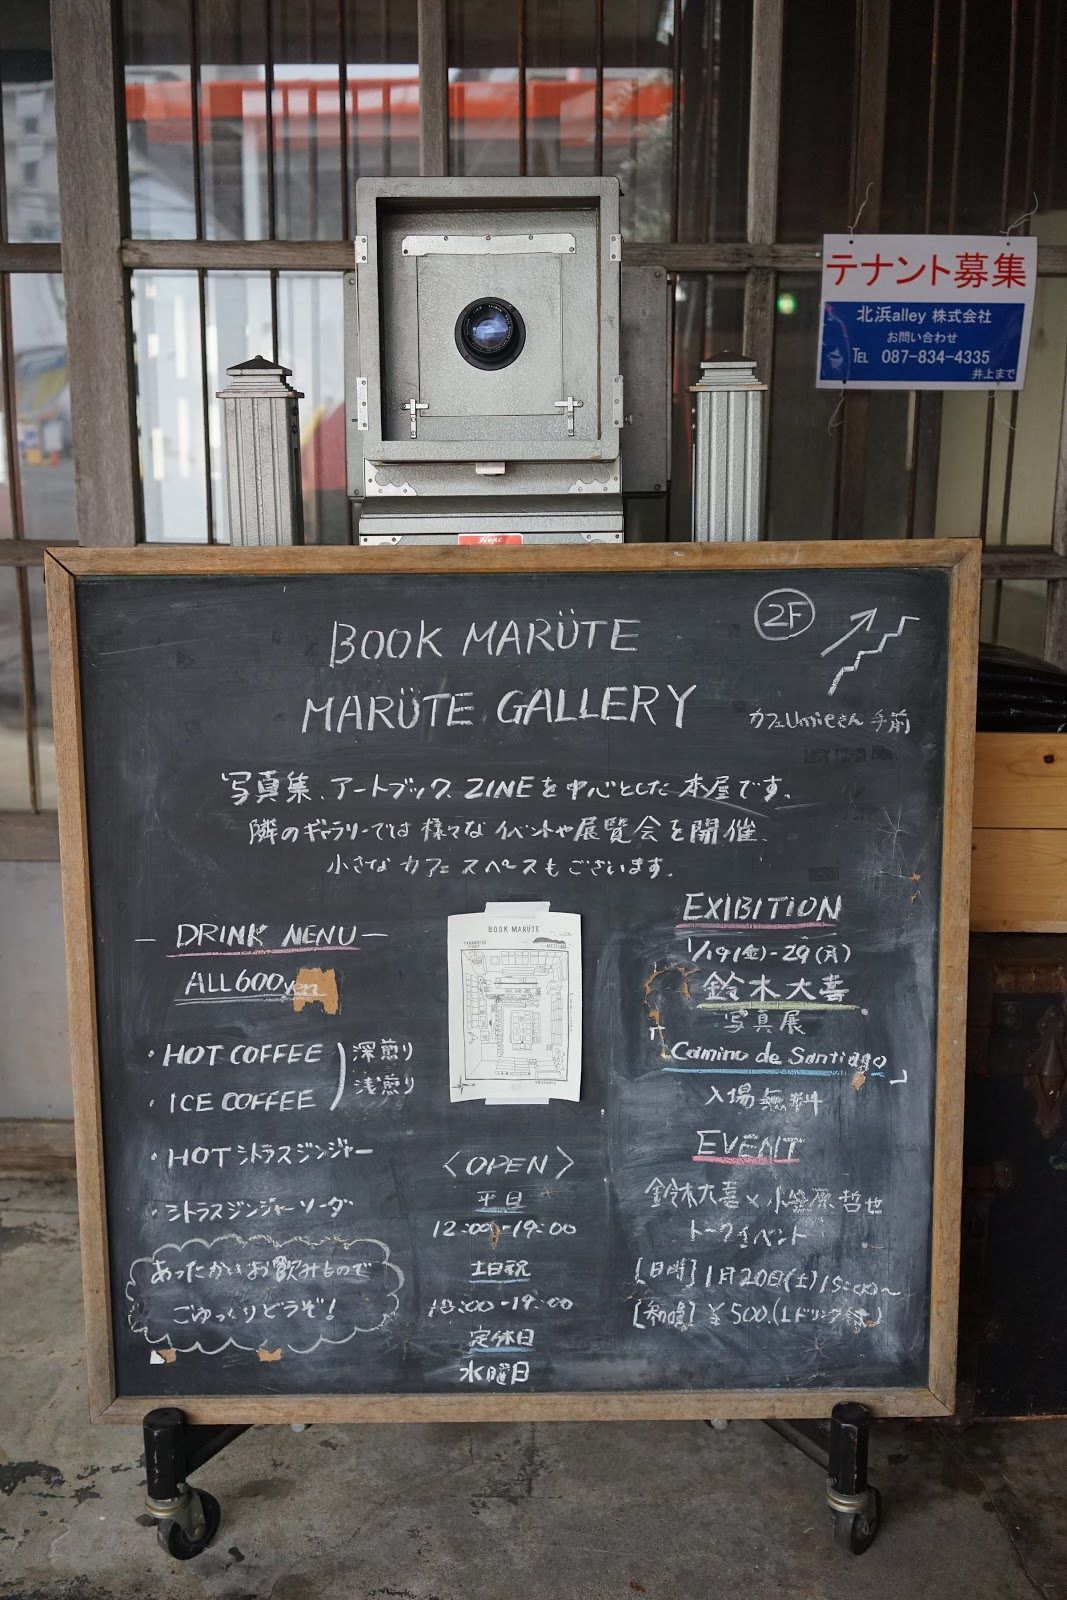 テナント募集
北浜alley 株式会社
お問い合わせ
TEL 087-834-4335
井上まで
Hope
BOOK MARÜTE
MARÜTE GALLERY
2F
カフェUmieさん 手前
写真集、アートブック、ZINEを中心とした本屋です。
隣のギャラリーでは様々なイベントや展覧会を開催、
小さなカフェスペースもございます。
— DRINK MENU —
ALL 600yen
・HOT COFFEE
・ICE COFFEE
深煎り
浅煎り
・HOT シトラスジンジャー
・シトラスジンジャーソーダ
あったかいお飲みもので
ごゆっくりどうぞ!
BOOK MARUTE
〈OPEN〉
平日
12:00-19:00
土日祝
-19:00
定休日
水曜日
EXIBITION
1/19(金)-29(月)
鈴木大喜
写真展
「Camino de Santiago」
入場無料
EVENT
鈴木大喜×小笠原哲也
トークイベント
[日時] 1月20日(土)
¥500.(1ドリンク付)